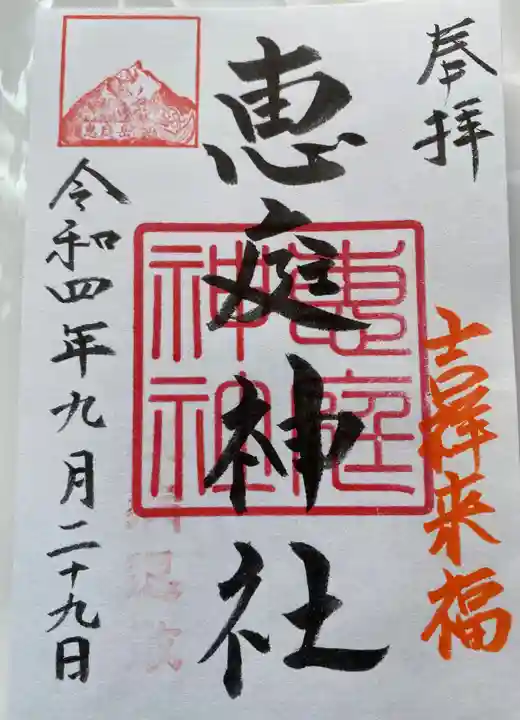 奉拝
吉祥来福
恵庭神社
恵庭神社
恵庭岳
令和四年九月二十九日